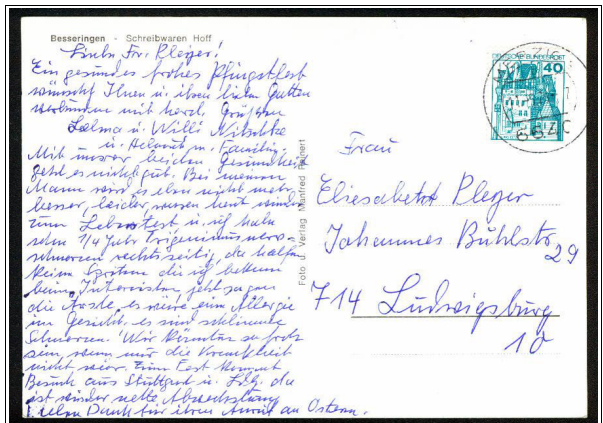 Besseringen - Schreibwaren Hoff
Liebe Fr. Pleger!
Ein gesundes frohes Pfingstfest
wünscht Ihnen u. ihren lieben Gatten
verbunden mit herzl. Grüßen
Selma u. Willi Nitschke
u. Helmut m. Familie.
Mit unser beiden Gesundheit
geht es nicht gut. Bei meinem
Mann wird es eben nicht mehr
besser, leider, müssen heut wieder
zum u. ich habe
schon 1/4 Jahr Trigeminusnerv-
schmerzen rechtsseitig, da halfen
keine Spritzen die ich bekam
beim Internisten, jetzt sagen
die Ärzte, es wäre eine Allergie
im Gesicht, es sind schlimme
Schmerzen. Wir könnten so froh
sein wenn nur die Krankheit
nicht wär. Zum Fest kommt
Besuch aus Stuttgart u. Lbg. da
ist wieder nette Abwechslung
Vielen Dank für ihren Anruf an Ostern.
Foto u. Verlag Manfred
DEUTSCHE BUNDESPOST
40
ELTZ
6640
Frau
Eliesabetht Pleger
Johannes Buhlstr
29
714 Ludwigsburg
10